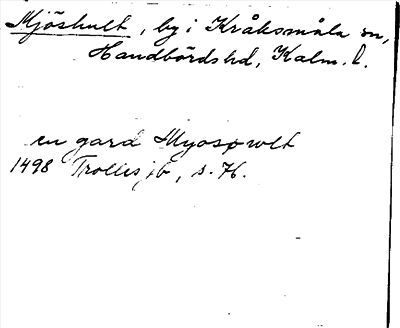 Mjöshult, by i Kråksmåla sn,
Handbörds hd, Kalm. l.
en gard Myosowlt
1498 Trolles jb, s. 76.